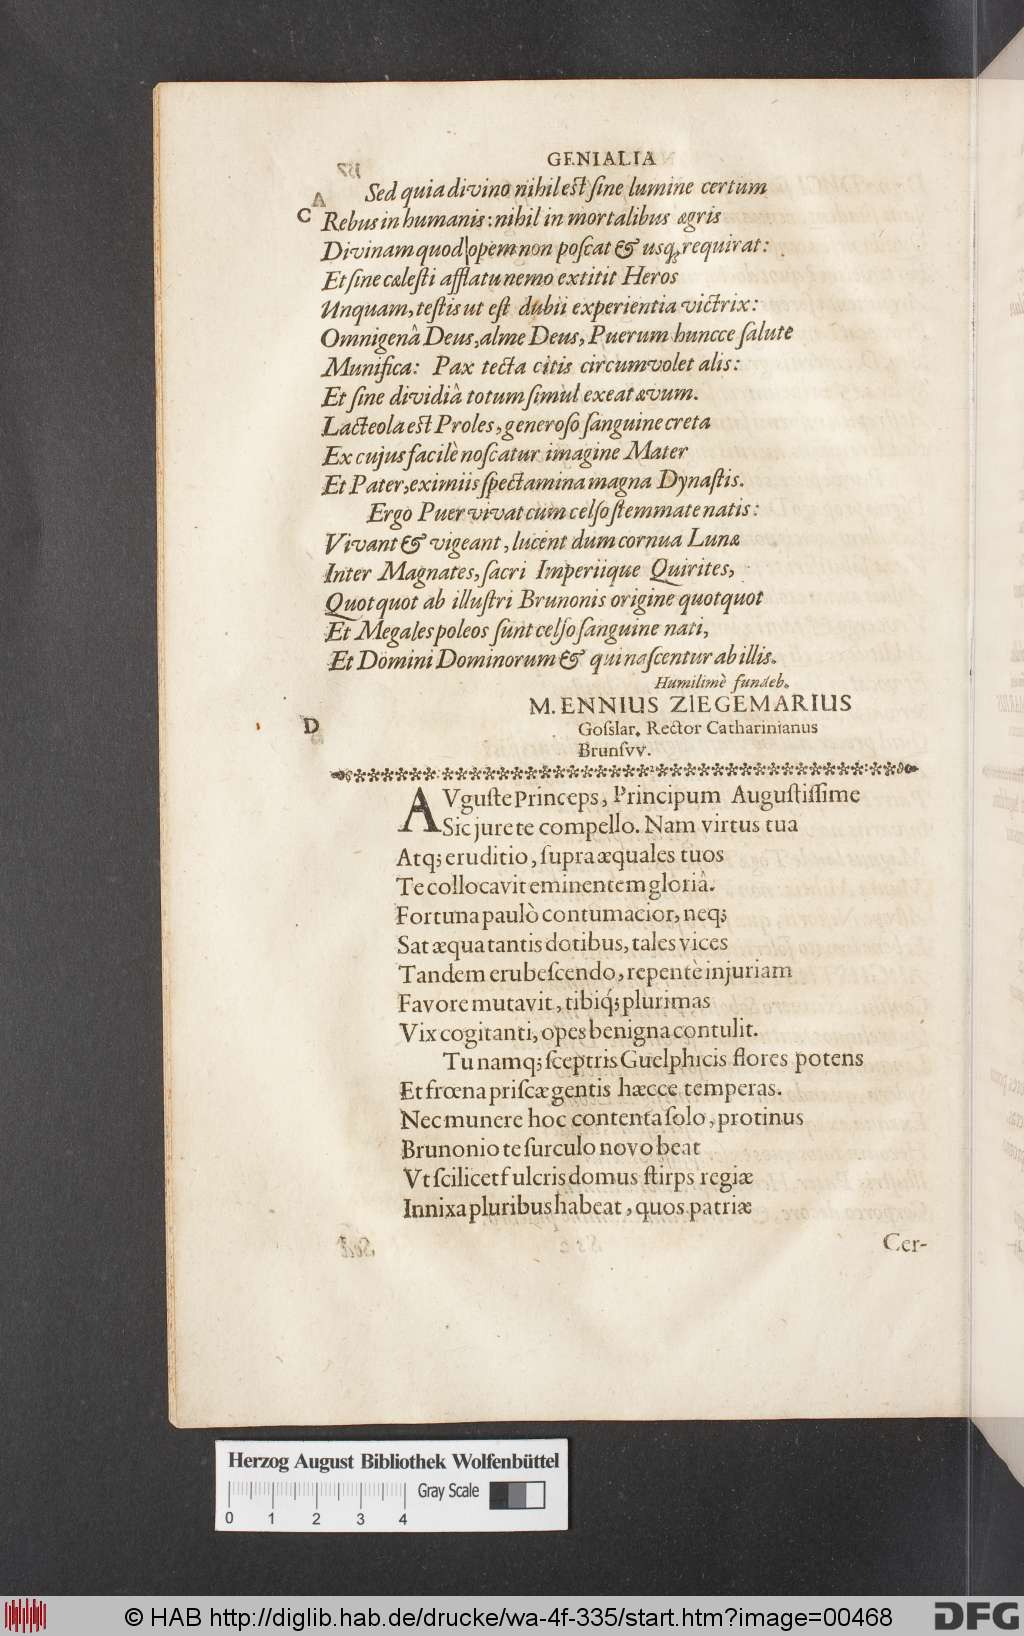 GENIALIA
Sed quia divino nihil est ſine lumine certum
C Rebus in humanis: nihil in mortalibus ægris
Divinam quod opem non poſcat & usq; requirat:
Et ſine cæleſti afflatu nemo extitit Heros
Unquam, teſtis ut eſt dubii experientia victrix:
Omnigenâ Deus, alme Deus, Puerum huncce ſalute
Munifica: Pax tecta citis circumvolet alis:
Et ſine dividiâ totum ſimul exeat ævum.
Lacteola est Proles, generoſo ſanguine creta
Ex cujus facilè noſcatur imagine Mater
Et Pater, eximiis ſpectamina magna Dynaſtis.
Ergo Puer vivat cum celſo ſtemmate natis:
Vivant & vigeant, lucent dum cornua Lunæ
Inter Magnates, ſacri Imperiique Quirites,
Quotquot ab illuſtri Brunonis origine quotquot
Et Megalespoleos ſunt celſo ſanguine nati,
Et Domini Dominorum & qui naſcentur ab illis.
Humilimè fundeb.
M. ENNIUS ZIEGEMARIUS
D Goſslar. Rector Catharinianus
Brunſvv.
AVguſte Princeps, Principum Auguſtiſſime
Sic jure te compello. Nam virtus tua
Atq; eruditio, ſupra æquales tuos
Te collocavit eminentem gloriâ.
Fortuna paulò contumacior, neq;
Sat æqua tantis dotibus, tales vices
Tandem erubeſcendo, repentè injuriam
Favore mutavit, tibiq́; plurimas
Vix cogitanti, opes benigna contulit.
Tu namq; ſceptris Guelphicis flores potens
Et frœna priſcæ gentis hæcce temperas.
Nec munere hoc contenta ſolo, protinus
Brunonio te ſurculo novo beat
Vt ſcilicet fulcris domus ſtirps regiæ
Innixa pluribus habeat, quos patriæ
Cer-
Herzog August Bibliothek Wolfenbüttel
Gray Scale
0 1 2 3 4
© HAB http://diglib.hab.de/drucke/wa-4f-335/start.htm?image=00468
DFG